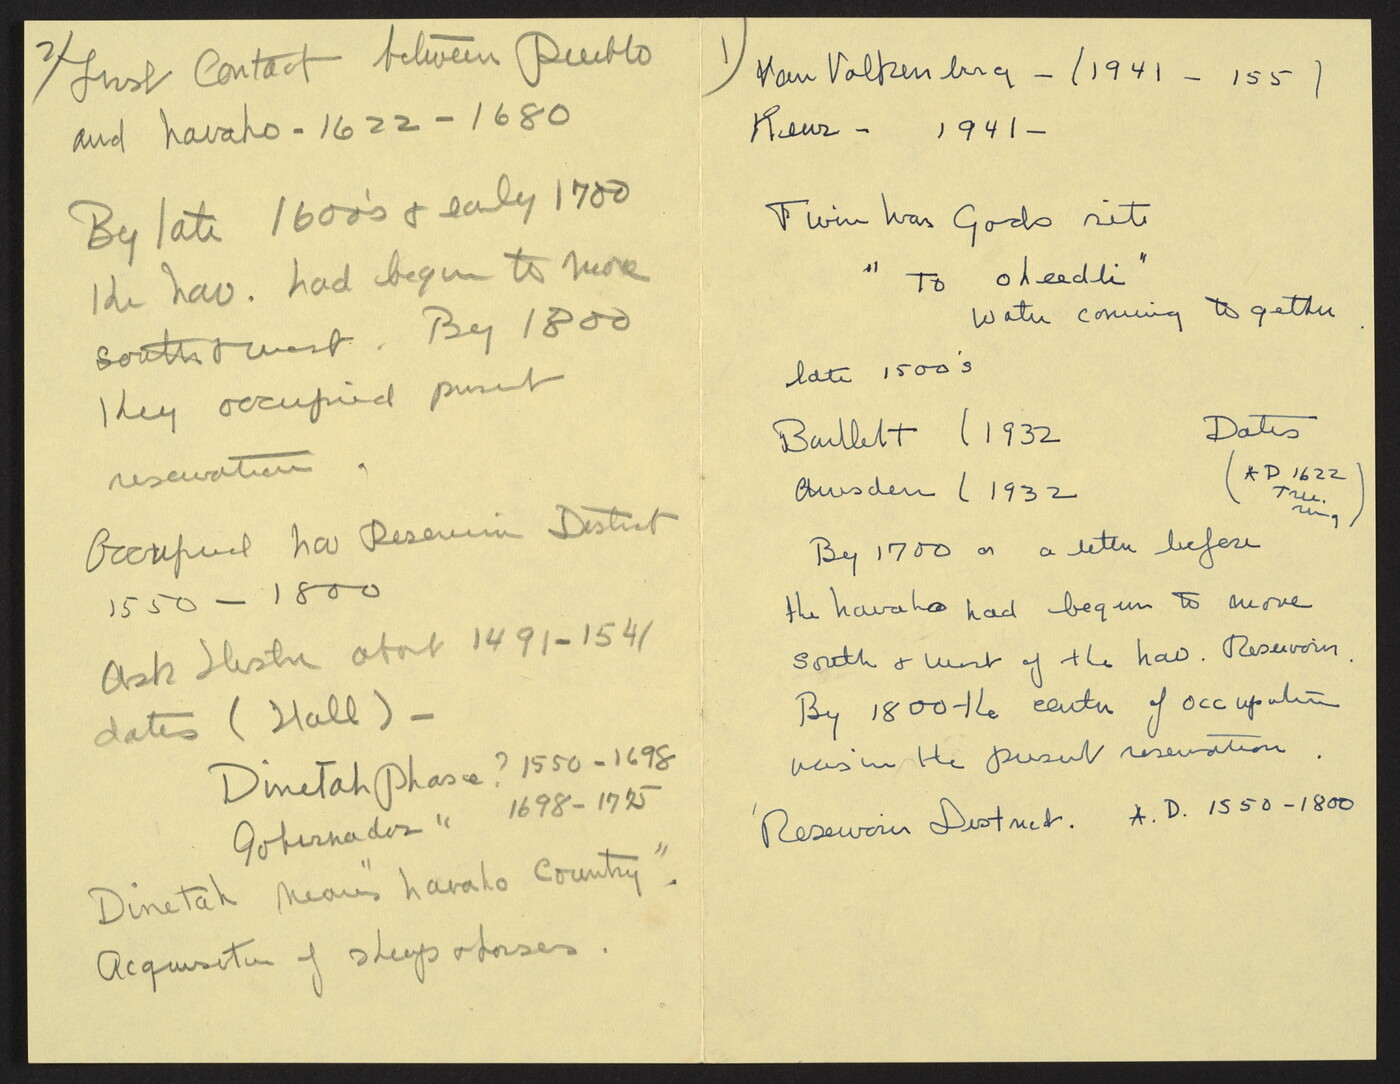 1)
Van Valkenburg - (1941 - 155)
Keur - 1941 -
Twin War Gods site
" To aheedli "
Water coming together.
late 1500's
Bartlett (1932
Dates
Amsden (1932
(AD 1622
Tree.
ring)
By 1700 or a little before
the navaho had begun to move
south & west of the nav. Reservoir.
By 1800 the center of occupation
was in the present reservation.
Reservoir District. A.D. 1550-1800
2/
First Contact between Pueblo
and navaho - 1622 - 1680
By late 1600's & early 1700
the nav. had begun to move
south & west. By 1800
they occupied present
reservation.
Occupied nav Reservoir District
1550 - 1800
Ask Hester about 1491-1541
dates (Hall) -
Dinetah phase? 1550-1698
Gobernador " 1698-1775
Dinetah means "navaho Country".
Acquisition of sheep & horses.